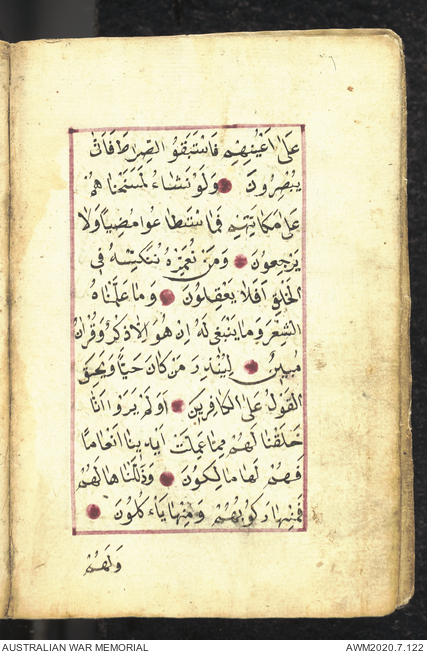 عَلَى اَعْيُنِهِمْ فَاسْتَبَقُوا الصِّرَاطَ فَاَنّٰى
يُبْصِرُونَ وَلَوْ نَشَاءُ لَمَسَخْنَا هُمْ
عَلَى مَكَانَتِهِمْ فَمَا سْتَطَا عُوا مُضِيًّا وَلَا
يَرْجِعُونَ وَمَنْ نُعَمِّرْهُ نُنَكِّسْهُ فِى
الْخَلْقِ اَفَلَا يَعْقِلُونَ وَمَا عَلَّمْنَاهُ
الشِّعْرَ وَمَا يَنْبَغِى لَهُ اِنْ هُوَ اِلَّا ذِكْرٌ وَقُرْاٰنٌ
مُبِينٌ لِيُنْذِرَ مَنْ كَانَ حَيًّا وَيَحِقَّ
الْقَوْلُ عَلَى الْكَافِرِينَ اَوَلَمْ يَرَوْا اَنَّا
خَلَقْنَا لَهُمْ مِمَّا عَمِلَتْ اَيْدِينَا اَنْعَامًا
فَهُمْ لَهَا مَالِكُونَ وَذَلَّلْنَا هَا لَهُمْ
فَمِنْهَا رَكُوبُهُمْ وَمِنْهَا يَاْءكُلُونَ
وَلَهُمْ
AUSTRALIAN WAR MEMORIAL
AWM2020.7.122